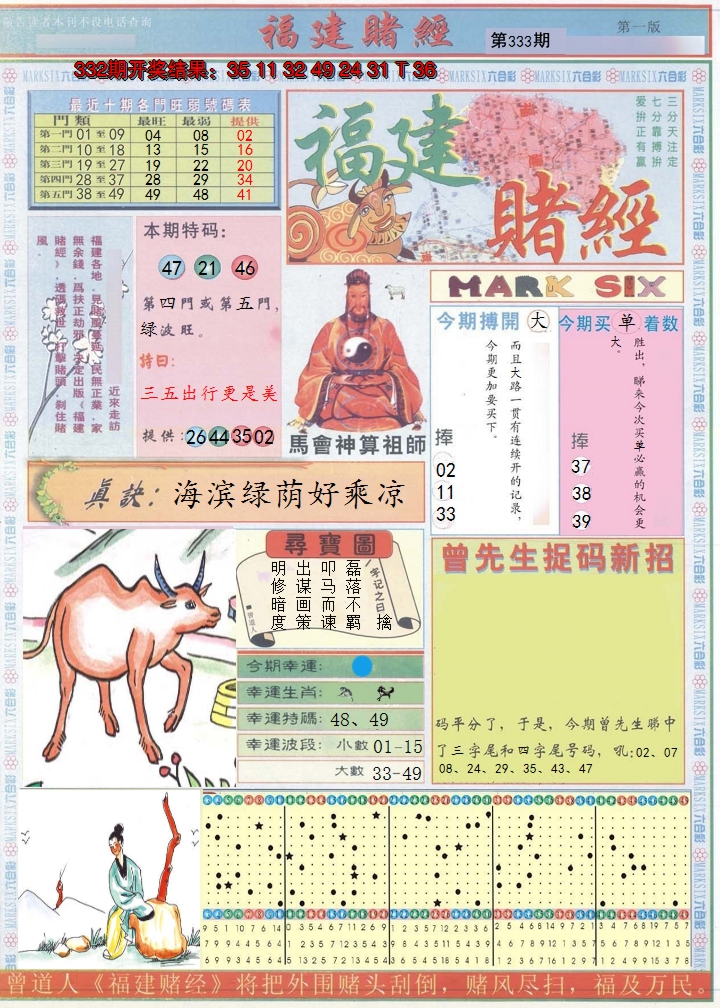 敬告读者本刊不设电话查询
福建賭經
第333期
第一版
332期开奖结果：35 11 32 49 24 31 T 36
MARKSIX六合彩
最近十期各門旺弱號碼表
門類 最旺 最弱 提供
第一門 01 至 09 04 08 02
第二門 10 至 18 13 15 16
第三門 19 至 27 19 22 20
第四門 28 至 37 28 29 34
第五門 38 至 49 49 48 41
福建
賭經
三分天注定
七分靠搏拚
爱拚正有赢
近來走訪
福建各地，見賭風蔓延，民無正業，家
無余錢，爲扶正劫邪，决定出版《福建
賭經》，透碼救世，打擊賭頭，剎住賭
風。
本期特码：
47 21 46
第四門或第五門，
绿波旺。
持曰：
三五出行更是美
提供：26 44 35 02
馬會神算祖師
MARK SIX
今期搏開 大
而且大路一贯有连续开的记录，
今期更加要买下。
捧
02
11
33
今期买 单 着数
胜出，睇来今次买单必赢的机会更
大。
捧
37
38
39
真訣：海滨绿荫好乘凉
尋寶圖
字记之曰
擒
磊落不羁
叩马而谏
出谋画策
明修暗度
曾道人
今期幸運：
幸運生肖：
幸運特碼：48、49
幸運波段：小數 01-15
大數 33-49
曾先生捉码新招
码平分了，于是，今期曾先生睇中
了三字尾和四字尾号码，吼：02、07
08、24、29、35、43、47
曾道人《福建赌经》将把外围赌头刮倒，赌风尽扫，福及万民。